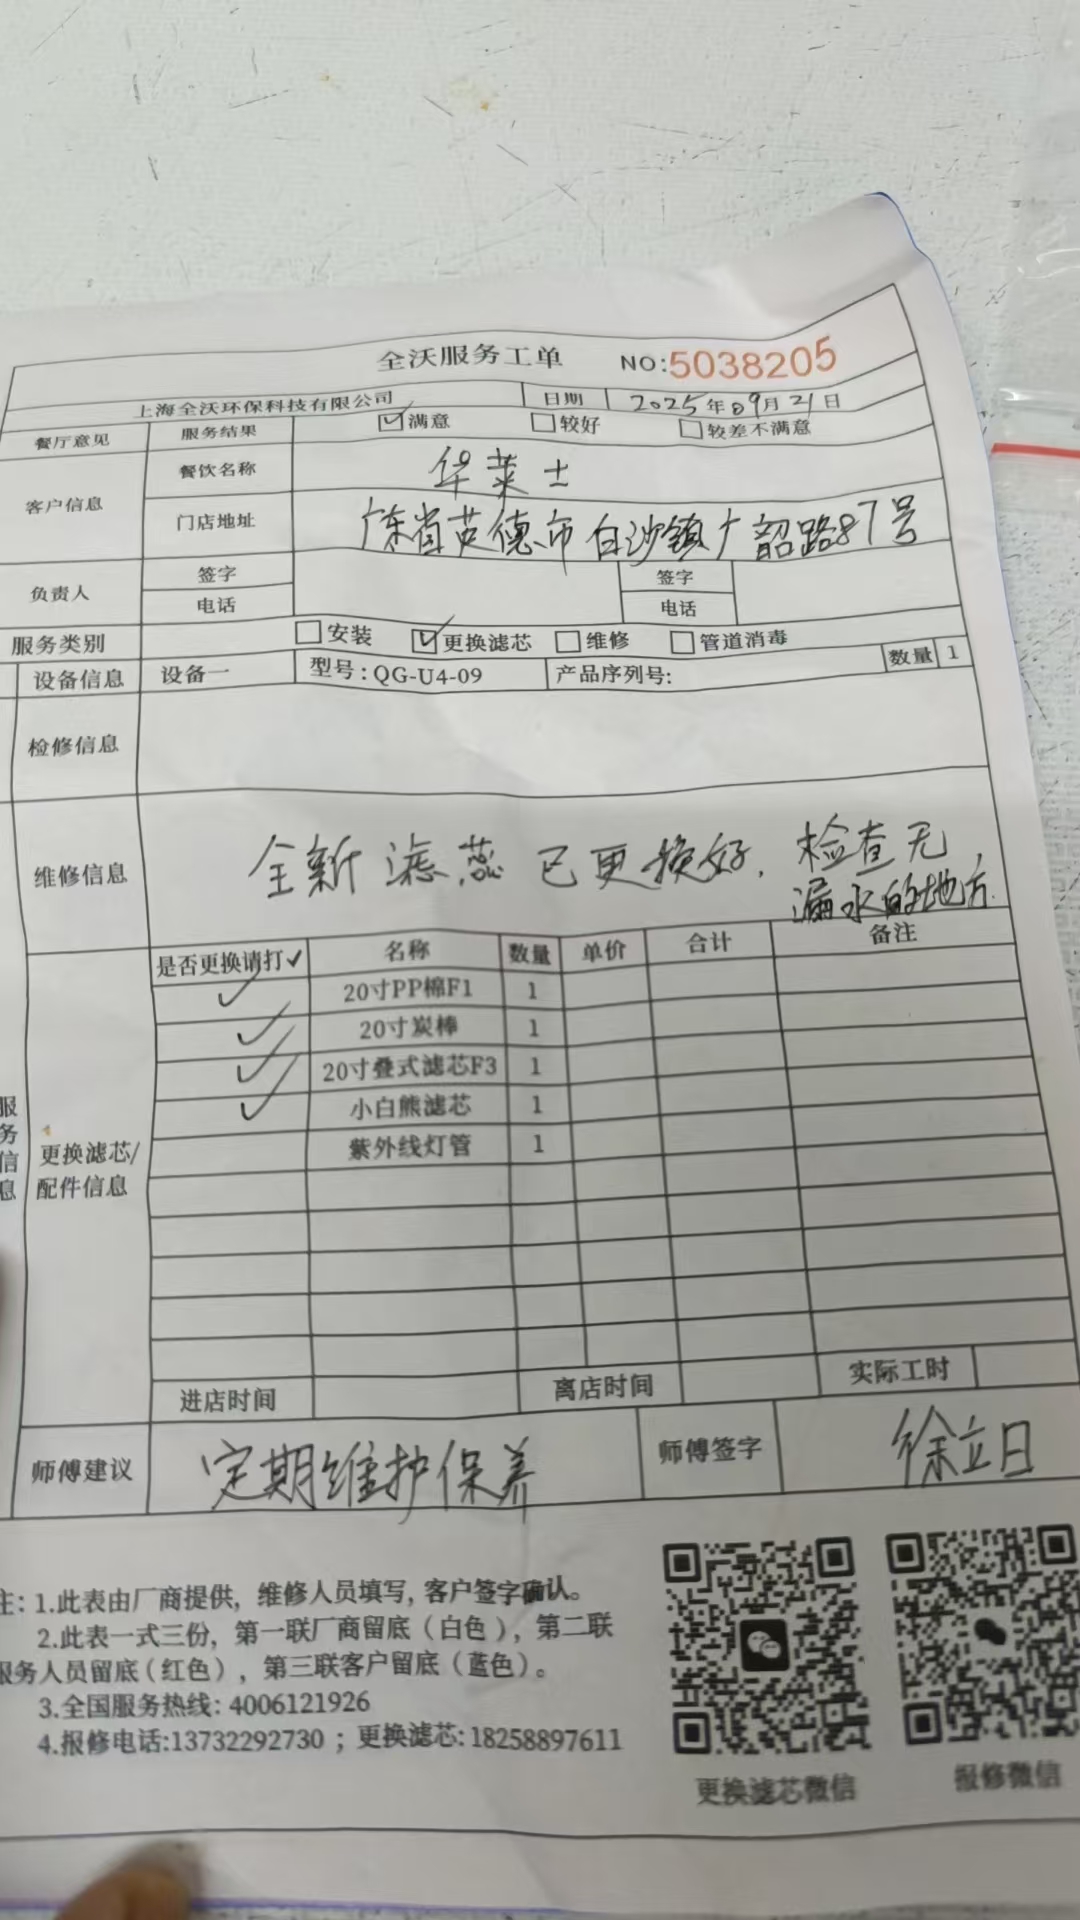 全沃服务工单 NO:5038205
上海全沃环保科技有限公司 日期 2025年09月21日
餐厅意见 服务结果 ☑满意 □较好 □较差不满意
客户信息 餐饮名称 华莱士
门店地址 广东省英德市白沙镇广韶路87号
负责人 签字 签字
电话 电话
服务类别 □安装 ☑更换滤芯 □维修 □管道消毒
设备信息 设备一 型号:QG-U4-09 产品序列号: 数量 1
检修信息
维修信息 全新滤蕊已更换好,检查无
漏水的地方.
是否更换请打✓ 名称 数量 单价 合计 备注
✓ 20寸PP棉F1 1
✓ 20寸炭棒 1
✓ 20寸叠式滤芯F3 1
✓ 小白熊滤芯 1
紫外线灯管 1
服务信息
更换滤芯/
配件信息
进店时间 离店时间 实际工时
师傅建议 定期维护保养 师傅签字 徐立日
注:1.此表由厂商提供,维修人员填写,客户签字确认。
2.此表一式三份,第一联厂商留底(白色),第二联
服务人员留底(红色),第三联客户留底(蓝色)。
3.全国服务热线:4006121926
4.报修电话:13732292730;更换滤芯:18258897611
更换滤芯微信 报修微信